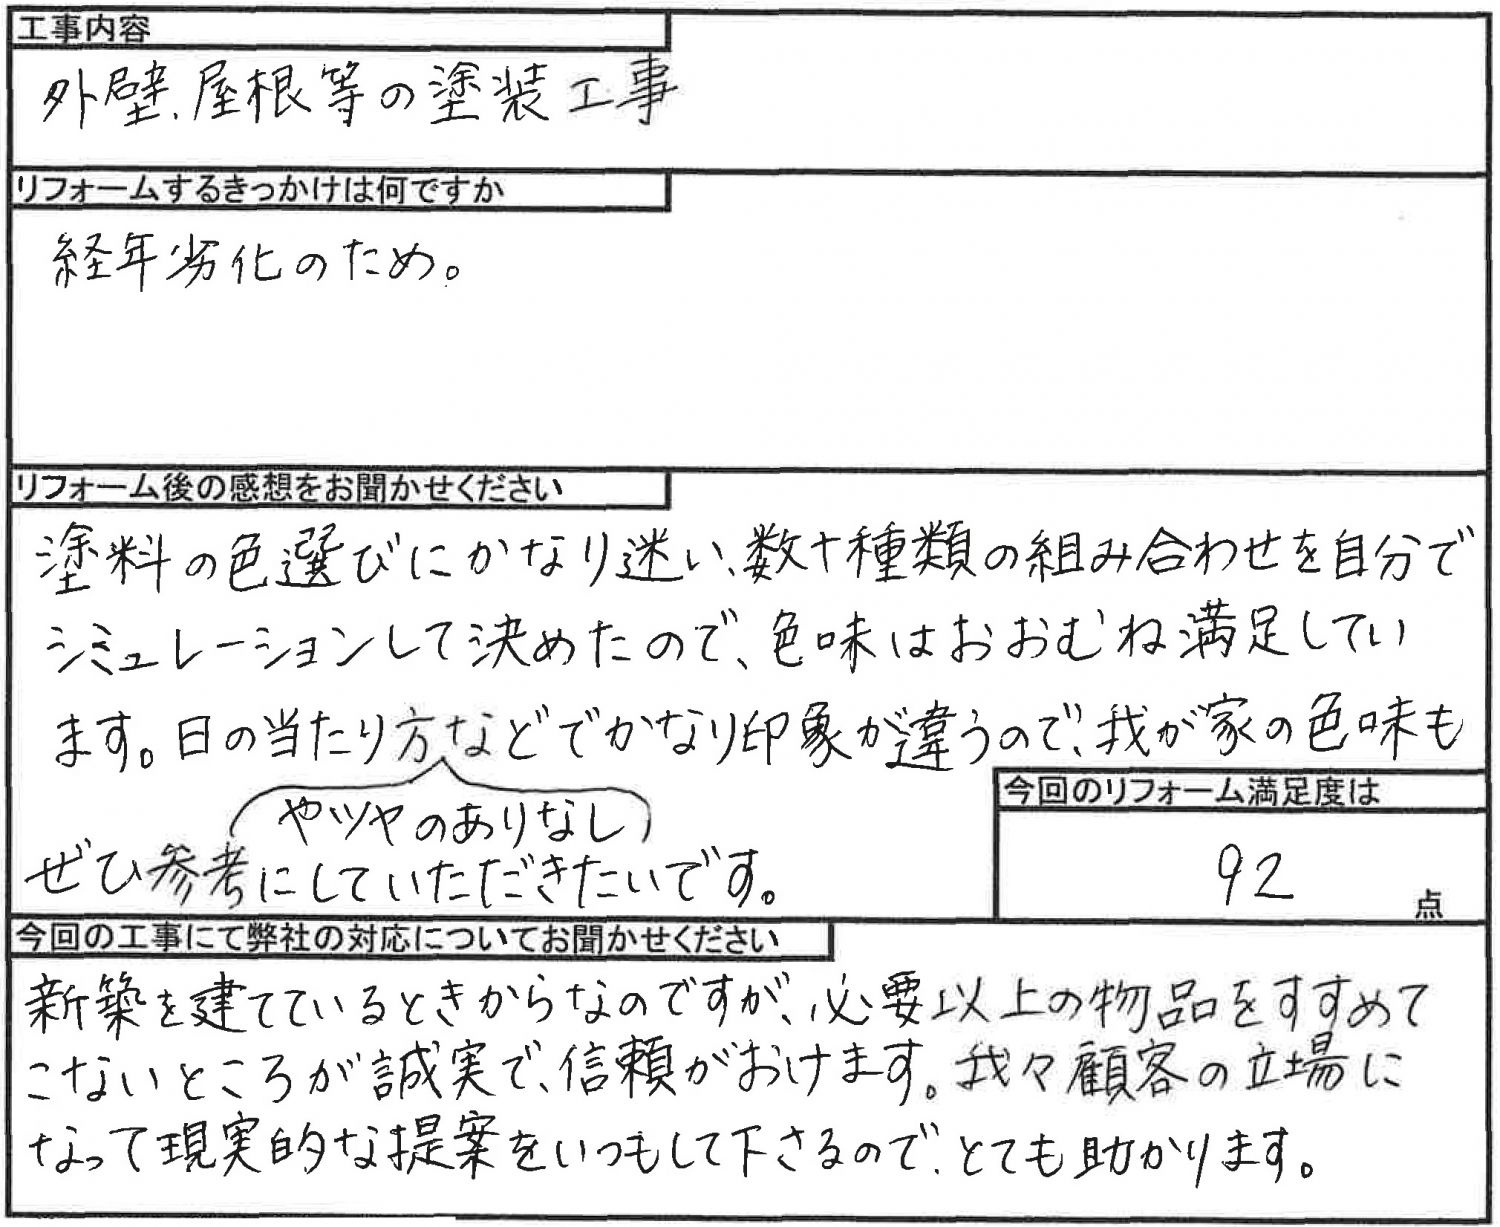 工事内容
外壁、屋根等の塗装工事
リフォームするきっかけは何ですか
経年劣化のため。
リフォーム後の感想をお聞かせください
塗料の色選びにかなり迷い、数十種類の組み合わせを自分で
シミュレーションして決めたので、色味はおおむね満足してい
ます。日の当たり方などでかなり印象が違うので、我が家の色味も
やツヤのありなし
ぜひ参考にしていただきたいです。
今回のリフォーム満足度は
92点
今回の工事にて弊社の対応についてお聞かせください
新築を建てているときからなのですが、必要以上の物品をすすめて
こないところが誠実で、信頼がおけます。我々顧客の立場に
なって現実的な提案をいつもして下さるので、とても助かります。